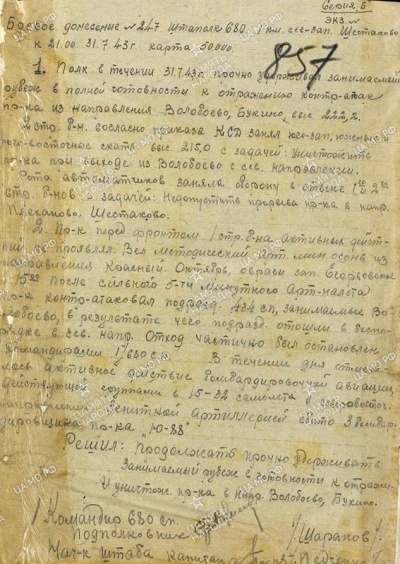 Серия Б
экз. №
Боевое донесение № 247 Штаполк 680, 1 км. сев-зап. Шестаково
к 21.00 31.7.43г. карта 50000.
857
1. Полк в течении 31.7.43г. прочно удерживал занимаемый
рубеж в полной готовности к отражению контр-атак
пр-ка из направления Волобоево, Букино, выс. 222,2.
2 стр. б-н. согласно приказа КСД занял юго-зап. южные и
юго-восточные скаты выс. 215,0 с задачей: уничтожить
пр-ка при выходе из Волобоево с сев. направлении.
Рота автоматчиков заняла оборону в стыке 1го и 2го
стр. б-нов с задачей: Недопустить прорыва пр-ка в напр.
Плеханово, Шестаково.
2. Пр-к перед фронтом 1 стр. б-на активных дейст-
не проявлял. Вел методический арт. мин огонь из
направления Красный Октябрь, овраги зап. Егорьевское
15 после сильного 5-ти минутного Арт-налета
пр-к контр-атаковал подразд. 424 сп, занимаемые Во-
лобоево, в результате чего подразд. отошли в беспо-
рядке в сев. напр. Отход частично был остановлен
командирами 1/680 сп. В течении дня отме-
лось активное действие бомбардировочной авиации
действующей группами в 15-22 самолета в
направлении. Зенитной артиллерией сбито 3 бомбар-
дировщика пр-ка "Ю-88"
Решил: Продолжать прочно удерживать
Занимаемый рубеж в готовности к отраже-
и уничтож. пр-ка в напр. Волобоево, Букино.
/ Командир 680 сп.
Подполковник /Шарапов/
Нач-к штаба капитан